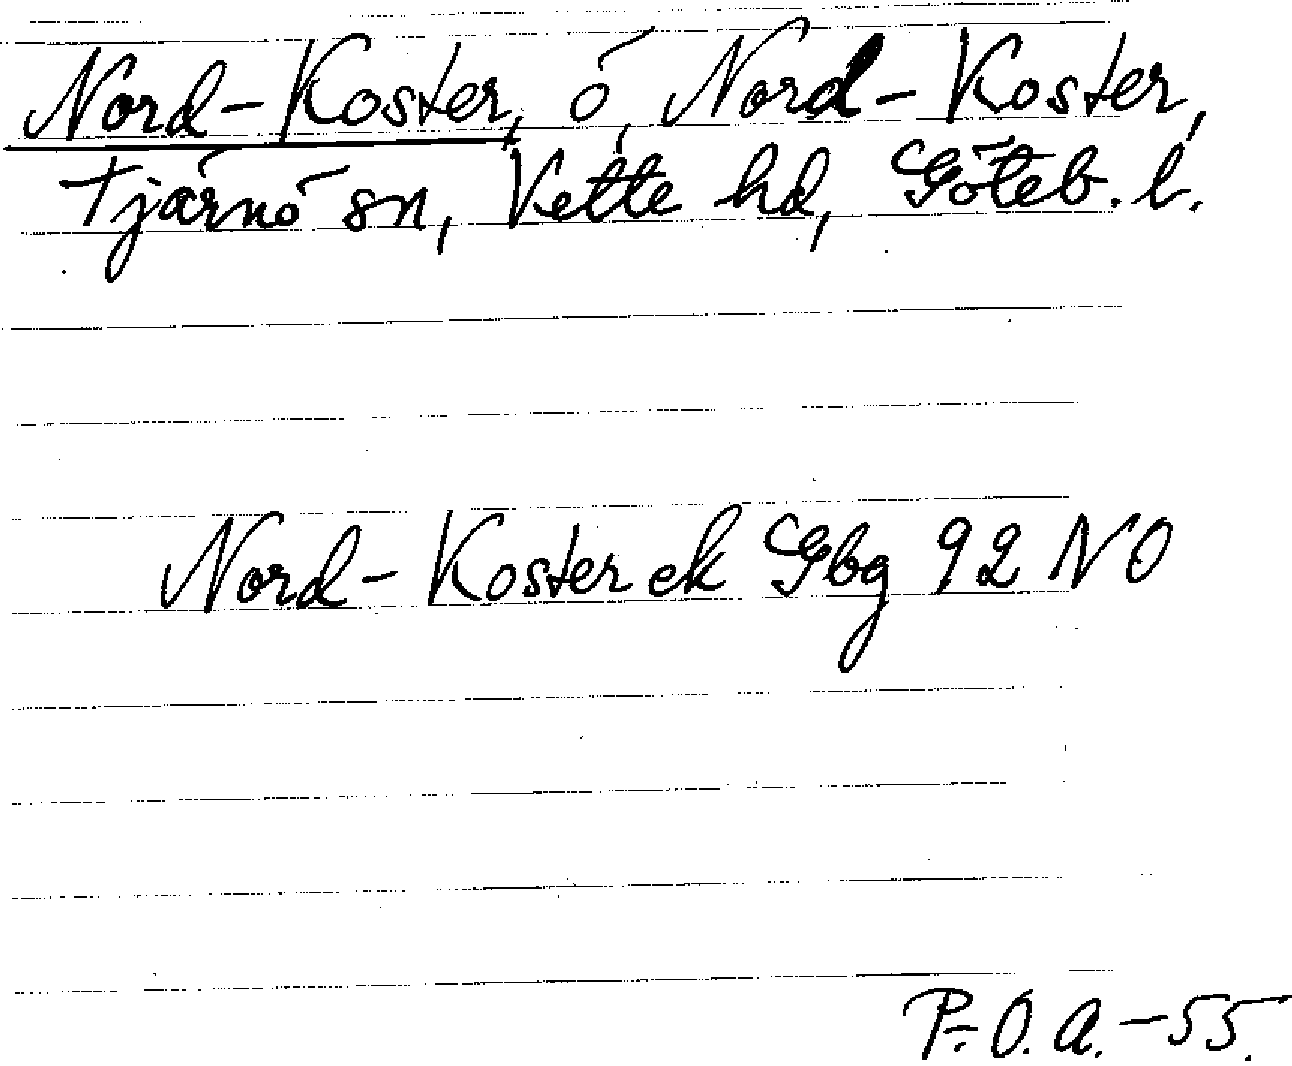 Nord-Koster, ö, Nord-Koster,
Tjärnö sn, Vette hd, Göteb. l.
Nord-Koster ek Gbg 92 NO
P.-O. A. -55.